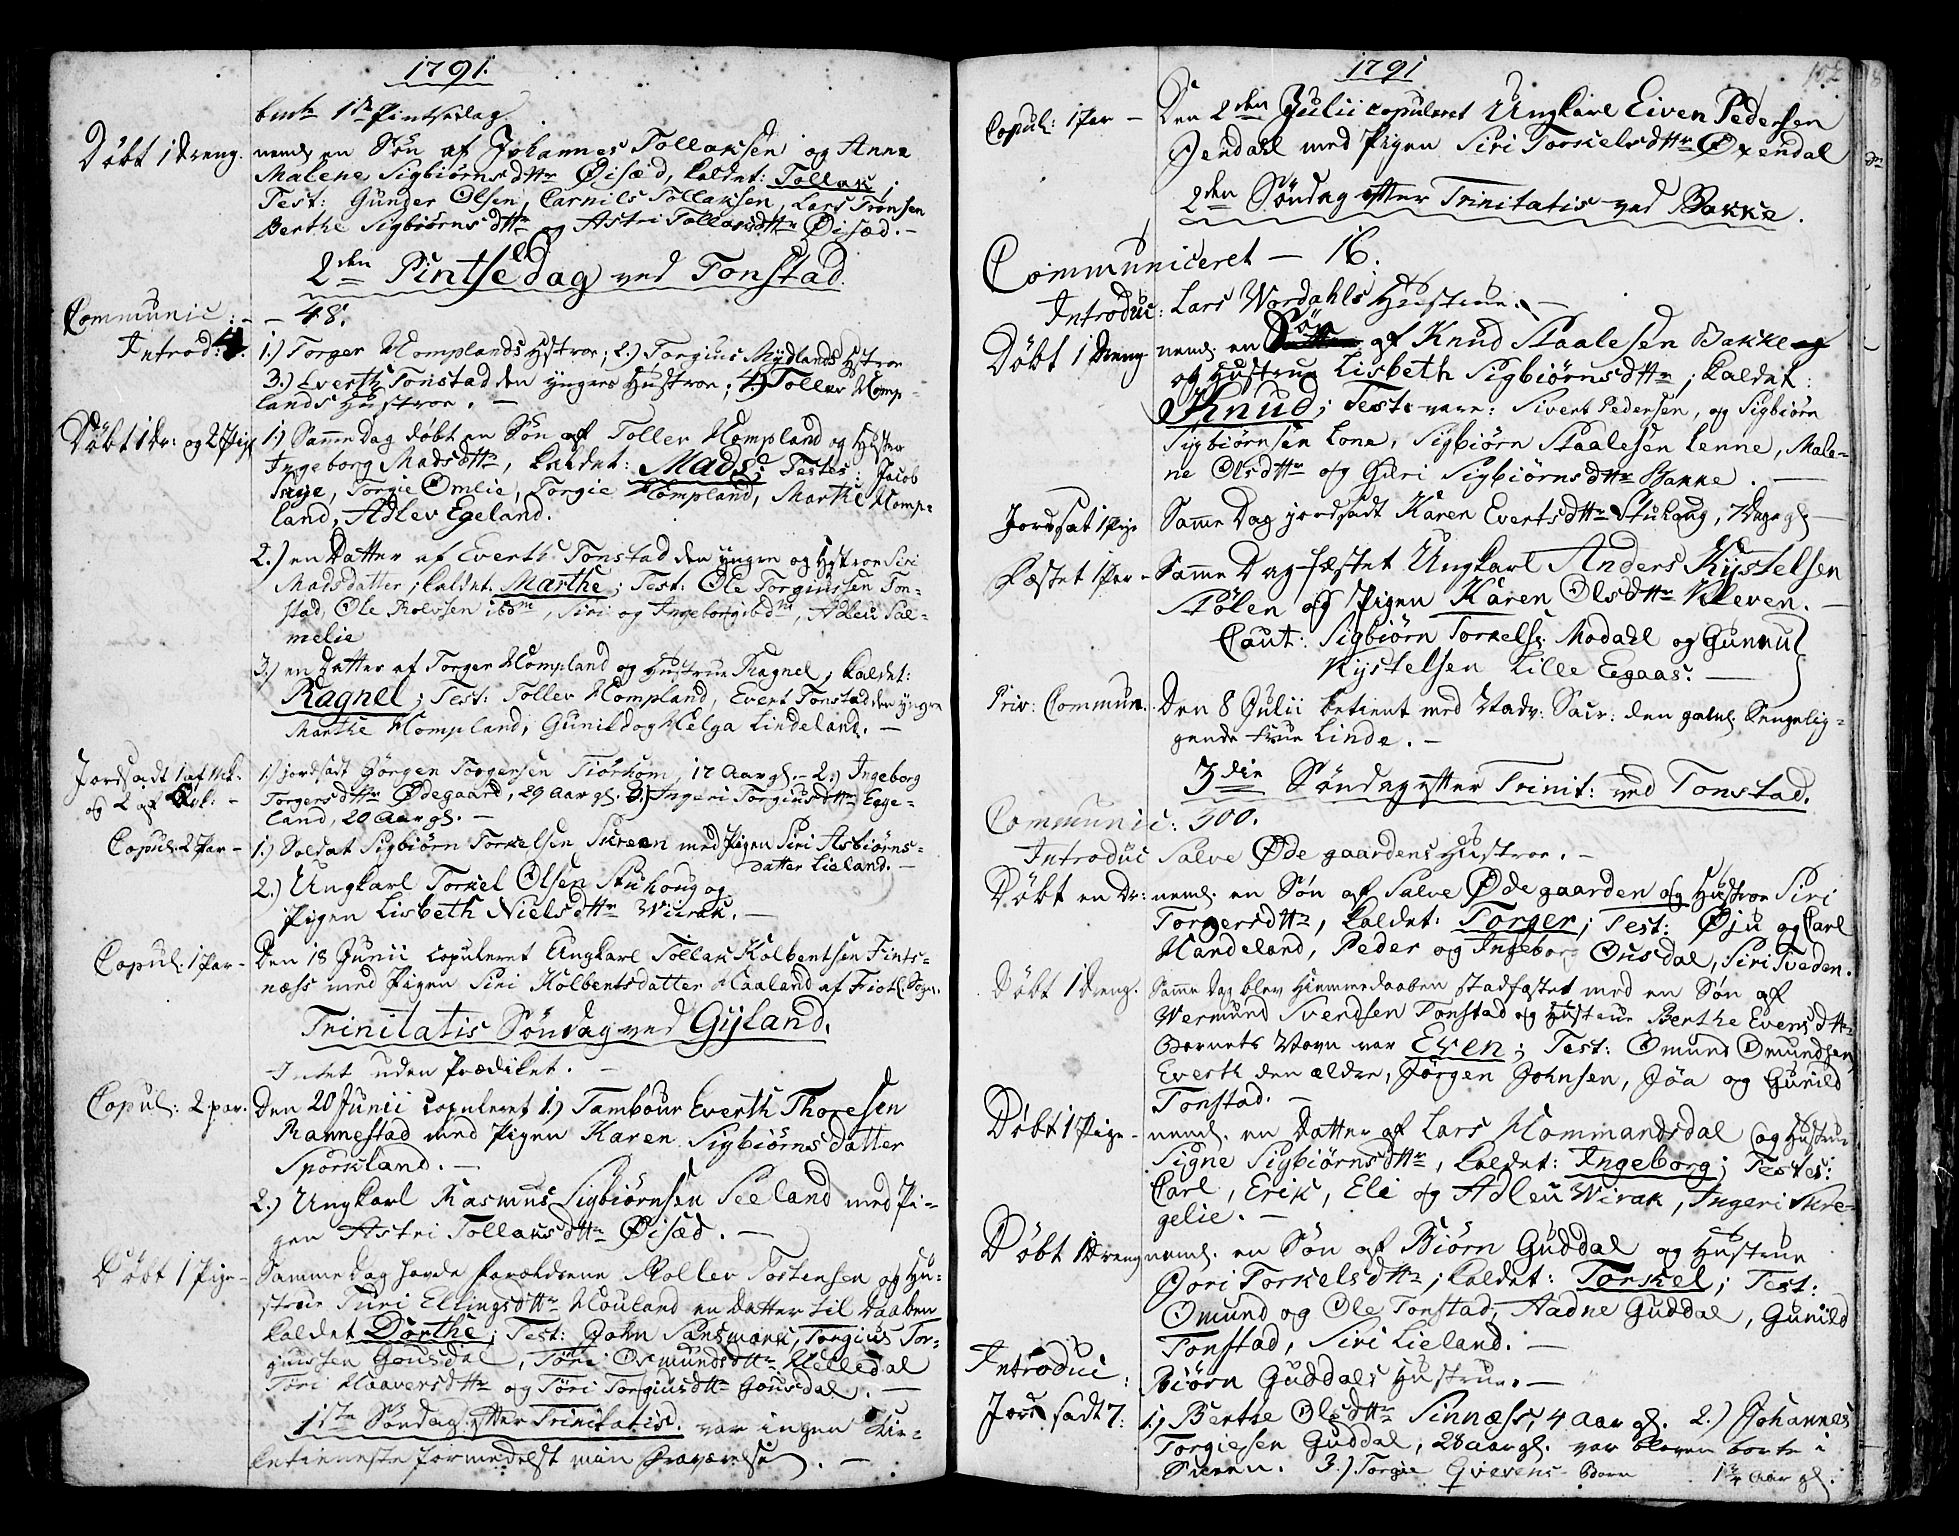 1791.
1te Pintsedag
Døbt 1 Dreng. neml. en Søn af Johannes Tollaksen og Anna
Malene Sigbiørnsdttr Øisæd, kaldet: Tollak;
Test: Gunder Olsen, Carnils Tollaksen, Lars Tronsen
Berthe Sigbiørnsdttr og Astri Tollaksdttr Øisæd. –
2den Pintsedag ved Tonstad.
Communic: – 48.
Introd: 4. 1.) Torger Homplands Hstroe; 2.) Torgius Mydlands Hstroe
3.) Everth Tonstad den yngres Hustroe; 4.) Tollev Homp-
lands Hustroe. –
Døbt 1 Dr: og 2 Pig. 1.) Samme Dag døbt en Søn af Tollev Hompland og Hustr
Ingeborg Madsdttr, kaldet: Mads; Testes: Jacob
Torgie Omlie, Torgie Hompland, Marthe Homp-
land, Adlev Egeland.
2.) en Datter af Everth Tonstad den yngre og Hstroe Siri
Madsdatter; kaldet: Marthe; Test: Ole Torgiussen Ton-
stad, Ole Rolvsen ibdm, Siri og Ingeborg ibdm, Adleu Sal-
melie
3.) en Datter af Torger Hompland og Hustrue Ragnel; kaldet:
Ragnel; Test: Tollev Hompland, Evert Tonstad den yngre
Marthe Hompland, Gunild og Helga Lindeland. –
Jordsadt 1 af Mk: 1.) jordsadt Jørgen Torgersen Tiørhom, 17 Aar gl. – 2.) Ingeborg
og 2 af Qvk: – Torgersdttr Ødegaard, 29 Aar gl. 3.) Ingeri Torgiusdttr Egge-
land, 20 Aar gl. –
Copul: 2 Par – 1.) Soldat Sigbiørn Torkelsen Skreen med Pigen Siri Asbiørns-
datter Lieland. –
2.) Ungkarl Torkel Olsen Stuhoug og
Pigen Lisbeth Nielsdttr Wirak. –
Copul: 1 Par – Den 18 Junii copuleret Ungkarl Tollak Kolbentsen Fints-
næss med Pigen Siri Kolbentsdatter Haaland af Fiotl. Sogn.
Trinitatis Søndag ved Gyland.
Intet uden Prædiket. –
Copul: 2 par. Den 20 Junii copuleret 1.) Tambour Everth Thoresen
Rannestad med Pigen Karen Sigbiørnsdatter
Spørkland. –
2.) Ungkarl Rasmus Sigbiørnsen Seeland med Pi-
gen Astri Tollaksdttr Øisæd. –
Døbt 1 Pige – Samme Dag havde Forældrene Stollev Tostensen og Hu-
strue Turi Ellingsdttr Mouland en Datter til Daaben
kaldet Dorthe; Test: John Sandsmark, Torgius Tor-
giussen Gousdal, Tøri Osmundsdttr Helledal
Tøri Haaversdttr og Tøri Torgiusdttr Gousdal. –
1ste Søndag efter Trinitatis: var ingen Kir-
ketienneste formedelst min Fraværelse. –
1791
152
Copul: 1 Par – Den 2den Julii copuleret Ungkarl Eiven Pedersen
Jendahl med Pigen Siri Torkelsdttr Øxendal
2den Søndag efter Trinitatis ved Bakke.
Communiceret – 16.
Introduc: Lars Wordahls Hustrue. –
Døbt 1 Dreng neml. en Søn af Knud Staalesen Bakke og
og Hustrue Lisbeth Sigbiørnsdttr; kaldet:
Knud; Test: vare: Sivert Pedersen, og Sigbiørn
Sigbiørnsen Lone, Sigbiørn Staalesen Lenne, Male-
ne Olsdttr og Guri Sigbiørnsdttr Bakke. –
Jordsat 1 Pige Samme Dag jordsadt Karen Evertsdttr Stuhoug, 7 Uger gl. –
Fæstet 1 Par – Samme Dag fæstet Ungkarl Anders Kystelsen
Stølen og Pigen Karen Olsdttr Kleven. –
Caut: Sigbiørn Torkels: Modahl og Gunnu
Kystelsen Lille Eegaas. –
Priv: Commun. Den 8 Julii betient med Nadv: Sacr: den gamle Sengelig-
gende Frue Linde. –
3die Søndag efter Trinit: ved Tonstad.
Communic: 100.
Introduc Salve Ødegaardens Hustroe. –
Døbt en Dr: neml. en Søn af Salve Ødegaarden og Hustroe Siri
Torgersdttr, kaldet: Torger; Test: Øju og Carl
Handeland, Peder og Ingebor Ousdal, Siri Tveden.
Døbt 1 Dreng. Samme Dag blev Hiemmedaaben stadfæstet med en Søn af
Wermund Svendsen Tonstad og Hustrue Berthe Evensdttr
Barnets Navn var Even; Test: Omund Omundsen
Everth den ældre, Jørgen Johnsen, Jøa og Gunild
Tonstad. –
Døbt 1 Pige – neml. en Datter af Lars Hommandsdal og Hustrue
Signe Sigbiørnsdttr, kaldet: Ingeborg; Testes:
Carl, Erik, Eli og Adleu Wirak, Ingeri Skre-
gelie. –
Døbt 1 Dreng neml. en Søn af Biørn Guddal og Hustrue
Jori Torkelsdttr; kaldet: Torkel; Test:
Omund og Ole Tonstad, Aadne Guddal, Gunild
Tonstad, Siri Lieland. –
Introduc: Biørn Guddals Hustrue. –
Jordsadt 7: 1.) Berthe Olsdttr Sinnæss, 4 Aar gl. 2.) Johannes
Torgiesen Guddal, 28 Aar gl. var bleven borte i
Sneen. 3.) Torgie Qvevens Barn Aar gl.